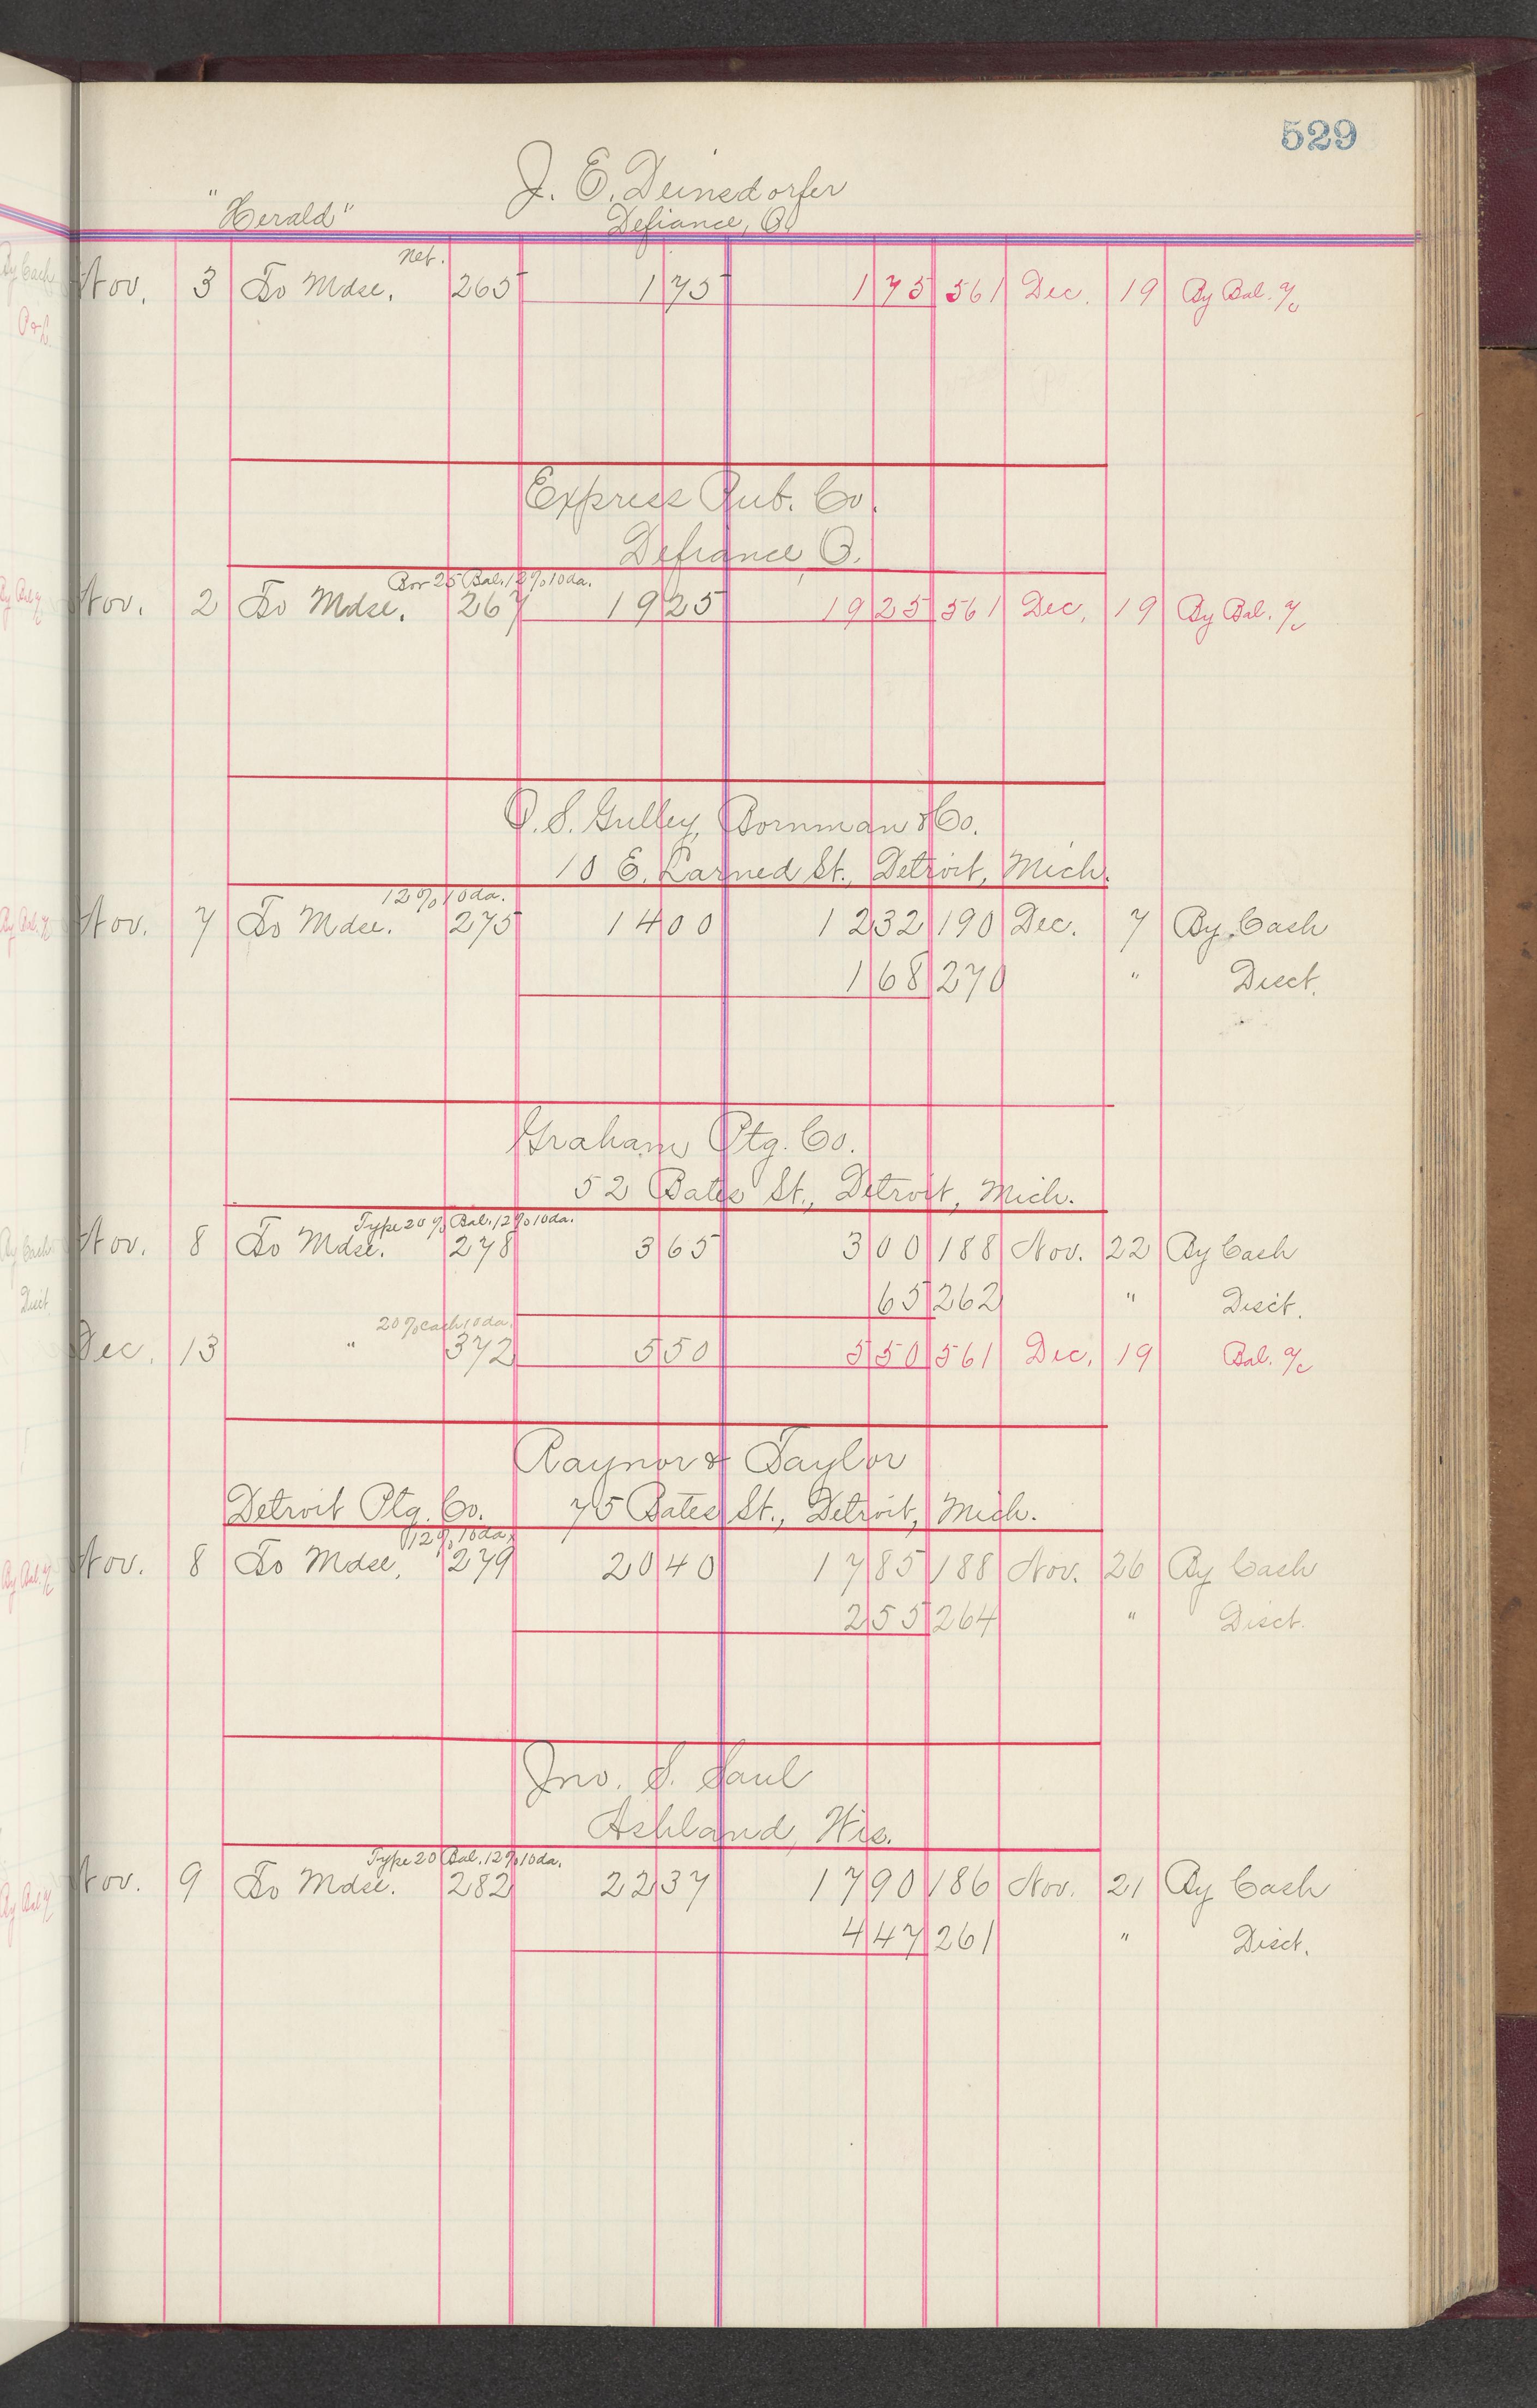 529
J. E. Deinsdorfer
"Herald" Defiance, O.
Net.
Nov. 3 To Mdse. 265 1 75 1 75 561 Dec. 19 By Bal. a/c
Express Pub. Co.
Defiance O.
Bor 25 Bal. 12% 10 da.
Nov. 2 To Mdse. 267 19 25 19 25 561 Dec. 19 By Bal. a/c
O. S. Gulley, Bornman & Co.
10 E. Larned St., Detroit, Mich.
12% 10 da.
Nov. 7 To Mdse. 275 14 00 12 32 190 Dec. 7 By Cash
1 68 270 " Disct.
Graham Ptg. Co.
52 Bates St., Detroit, Mich.
Type 20% Bal. 12% 10 da.
Nov. 8 To Mdse. 278 3 65 3 00 188 Nov. 22 By Cash
65 262 " Disct.
20% cash 10 da.
Dec. 13 " 372 5 50 5 50 561 Dec. 19 Bal. a/c
Raynor & Taylor
Detroit Ptg. Co. 75 Bates St., Detroit, Mich.
12% 10 da.
Nov. 8 To Mdse. 279 20 40 17 85 188 Nov. 26 By Cash
2 55 264 " Disct.
Jno. S. Saul
Ashland, Wis.
Type 20 Bal. 12% 10 da.
Nov. 9 To Mdse. 282 22 37 17 90 186 Nov. 21 By Cash
4 47 261 " Disct.